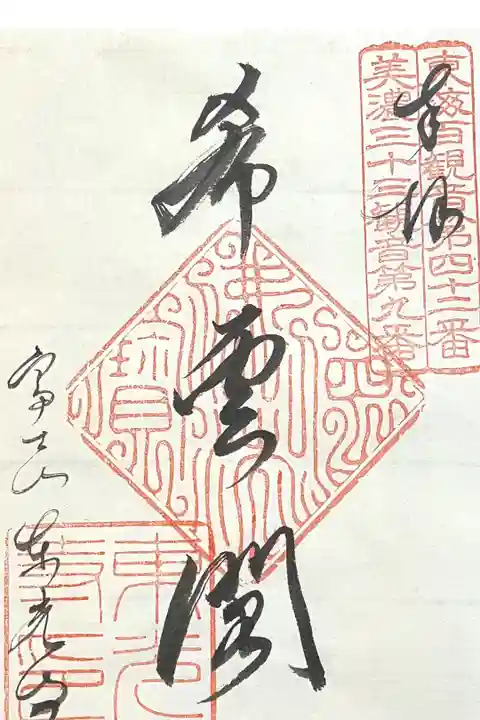 東海百観音第四十二番
美濃三十三観音第九番
奉拝
希雲閣
富士山 東光寺